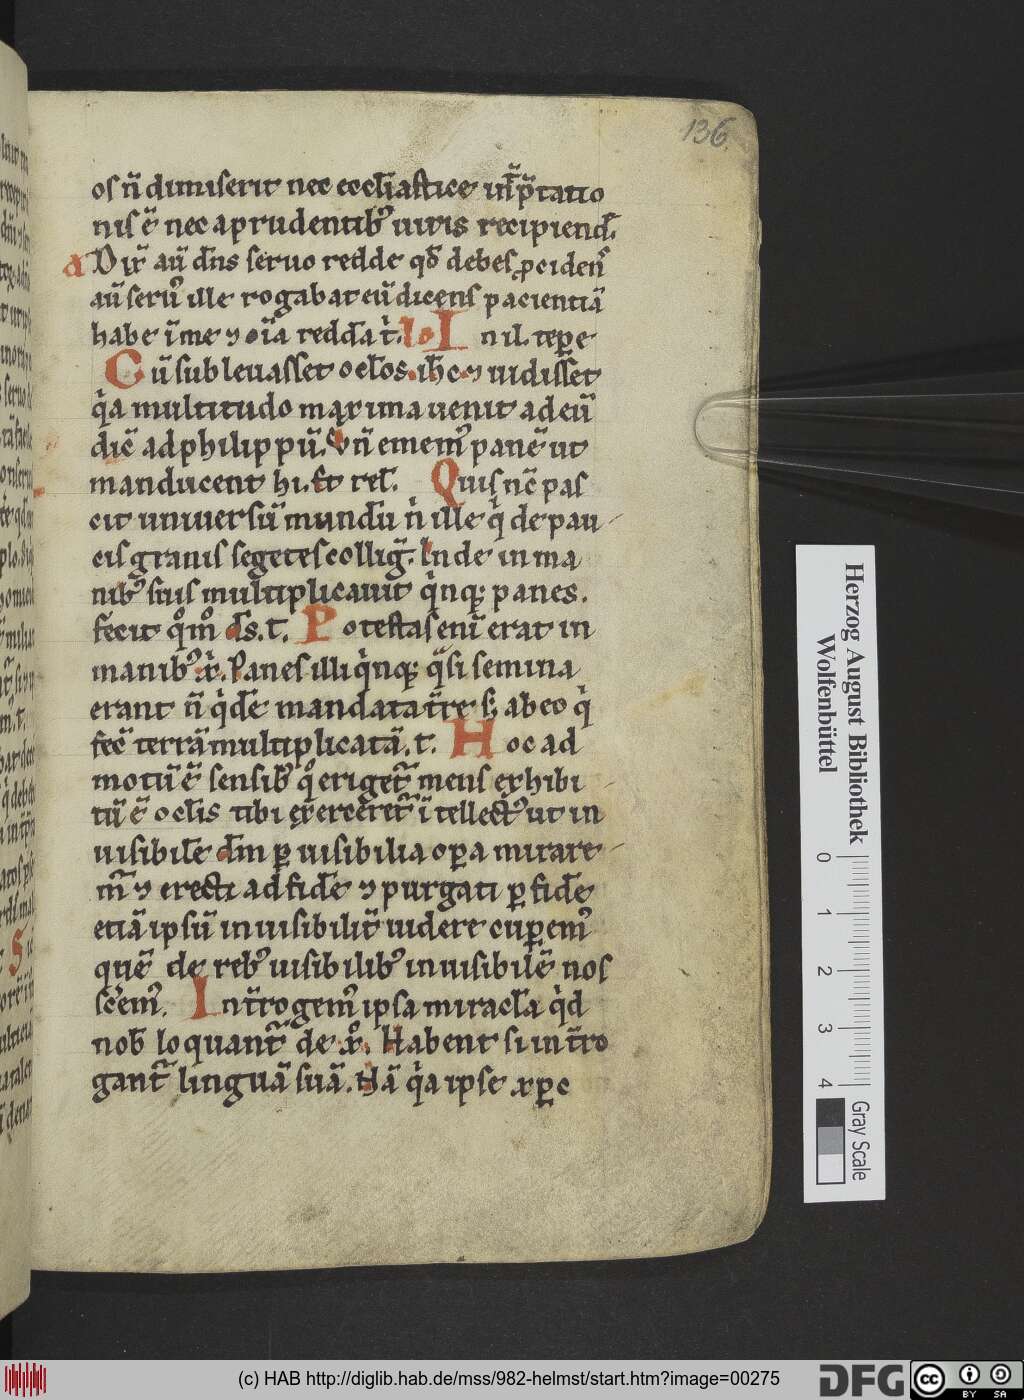 136.
os n̄ dimiserit nec eccl̄iastice int̄p̄tatio
nis ē nec a prudentib᷒ uiris recipiend̄.
a Dix̄ aū dn̄s seruo redde qd̄ debes ꝓcidens
aū seru᷒ ille rogabat eū dicens pacientiā
habe ī me ⁊ oīa redd̄a t̄.
Cū subleuasset ocl̄os ih̄c ⁊ uidisset
q̇a multitudo maxima uenit ad eū
dic̄ ad philippū. Vn̄ emem᷒ panē ut
manducent hi. et rel̄. Quis nc̄ pas
cit uniuersū mundū n̄ ille q̇ de pau
cis granis segetes colliḡ. Inde in ma
nib᷒ suis multiplicauit q̇nq; panes.
fecit qͦmͦ d̄s. t̄. Potestas enī erat in
manib᷒ xp̄i. Panes illi q̇nq; q̄si semina
erant n̄ q̇dē mandata t̄re s; ab eo q̇
fec̄ terrā multiplicatā. t̄. Hoc ad
motū ē sensib᷒ qͦ erigeret᷑ mens exhibi
tū ē ocl̄is tibi exerceret᷑ ītellect᷒ ut in
uisibilē d̄m ꝑ uisibilia oꝑa mirare
m᷑ ⁊ erecti ad fidē ⁊ purgati ꝑ fidē
etiā ipsū inuisibilit᷑ uidere cuperem᷒
quē de reb᷒ uisibilib᷒ inuisibilē nos
scem᷒. Int̄rogem᷒ ipsa miracl̄a q̇d
nob̄ loquant᷑ de xͦ. Habent si int̄ro
gant᷑ linguā suā. Nā q̇a ipse xp̄c
Herzog August Bibliothek
Wolfenbüttel
0 1 2 3 4
Gray Scale
(c) HAB http://diglib.hab.de/mss/982-helmst/start.htm?image=00275
DFG cc BY SA